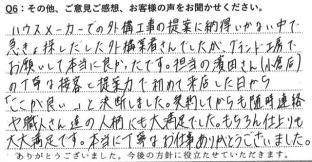 Q6：その他、ご意見ご感想、お客様の声をお聞かせください。
ハウスメーカーでの外構工事の提案に納得いかない中で
急きょ探しだした外構業者さんでしたが、グランド工房で
お願いして本当に良かったです。担当の濱田さん(小倉店)
の丁寧な接客と提案力で初めて来店した日から
「ここが良い」と決断しました。契約してからも随時連絡
や職人さん達の人柄にも大満足でした。もちろん仕上りも
大大満足です。本当に丁寧なお仕事ありがとうございました。
ありがとうございました。今後の方針に役立たせていただきます。